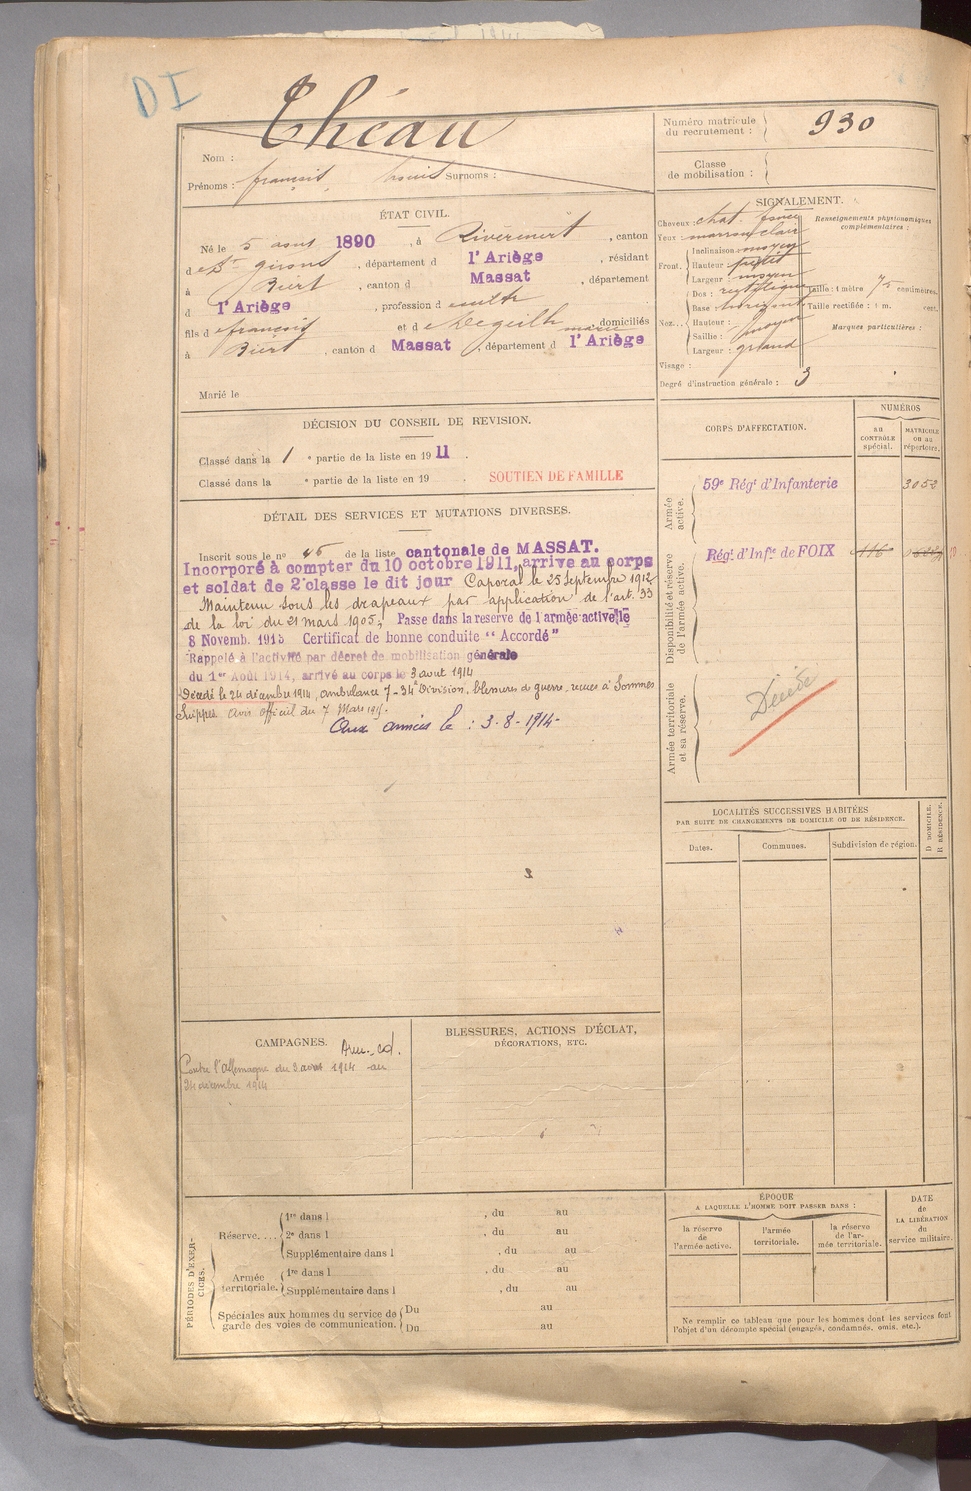 DI
Théau
Nom :
Prénoms : françois, Louis Surnoms :
Numéro matricule
du recrutement : 930
Classe
de mobilisation :
ÉTAT CIVIL.
Né le 5 août 1890, à Rivèrenert, canton
de St Girons, département d l'Ariège, résidant
à Biert, canton d Massat, département
d l'Ariège, profession de cult.
fils de françois et de Degeilh marie domiciliés
à Biert, canton d Massat, département d l'Ariège
Marié le
SIGNALEMENT.
Cheveux : chat. foncé
Yeux : marron clair
Front. Inclinaison : moyen
Hauteur : petit
Largeur : moyen
Nez... Dos : rectiligne
Base : horizont
Hauteur :
Saillie : moyen
Largeur : grand
Visage :
Renseignements physionomiques
complémentaires :
Taille : 1 mètre 75 centimètres.
Taille rectifiée : 1 m. cent.
Marques particulières :
Degré d'instruction générale : 3
DÉCISION DU CONSEIL DE REVISION.
Classé dans la 1 e partie de la liste en 1911.
Classé dans la e partie de la liste en 19 .
SOUTIEN DE FAMILLE
DÉTAIL DES SERVICES ET MUTATIONS DIVERSES.
Inscrit sous le no 46 de la liste cantonale de MASSAT.
Incorporé à compter du 10 octobre 1911, arrive au corps
et soldat de 2e classe le dit jour Caporal le 25 septembre 1912
Maintenu sous les drapeaux par application de l'art. 33
de la loi du 21 mars 1905, Passe dans la reserve de l'armée active le
8 Novemb. 1913 Certificat de bonne conduite "Accordé"
Rappelé à l'activité par décret de mobilisation générale
du 1er Août 1914, arrivé au corps le 3 aout 1914
Décédé le 24 décembre 1914, ambulance 7-34e Division, blessures de guerre, reçues à Sommes
Suippes. Avis officiel du 7 Mars 1915.
Aux armées le : 3-8-1914-
CORPS D'AFFECTATION.
NUMÉROS
AU
CONTRÔLE
spécial.
MATRICULE
ou au
répertoire.
Armée
active.
59e Régt d'Infanterie 3052
Disponibilité et réserve
de l'armée active.
Régt d'Infie de FOIX 116
Armée territoriale
et sa réserve.
Décédé
LOCALITÉS SUCCESSIVES HABITÉES
PAR SUITE DE CHANGEMENTS DE DOMICILE OU DE RÉSIDENCE.
Dates.
Communes.
Subdivision de région.
D DOMICILE.
R RÉSIDENCE.
CAMPAGNES.
Contre l'allemagne du 3 aout 1914 au
24 décembre 1914
BLESSURES, ACTIONS D'ÉCLAT,
DÉCORATIONS, ETC.
PÉRIODES D'EXER-
CICES.
Réserve.... 1re dans l , du au
2e dans l , du au
Supplémentaire dans l , du au
Armée
territoriale. 1re dans l , du au
Supplémentaire dans l , du au
Spéciales aux hommes du service de
garde des voies de communication. Du au
Du au
ÉPOQUE
A LAQUELLE L'HOMME DOIT PASSER DANS :
la réserve
de
l'armée active.
l'armée
territoriale.
la réserve
de l'ar-
mée territoriale.
DATE
de
LA LIBÉRATION
du
service militaire.
Ne remplir ce tableau que pour les hommes dont les services font
l'objet d'un décompte spécial (engagés, condamnés, omis, etc.).